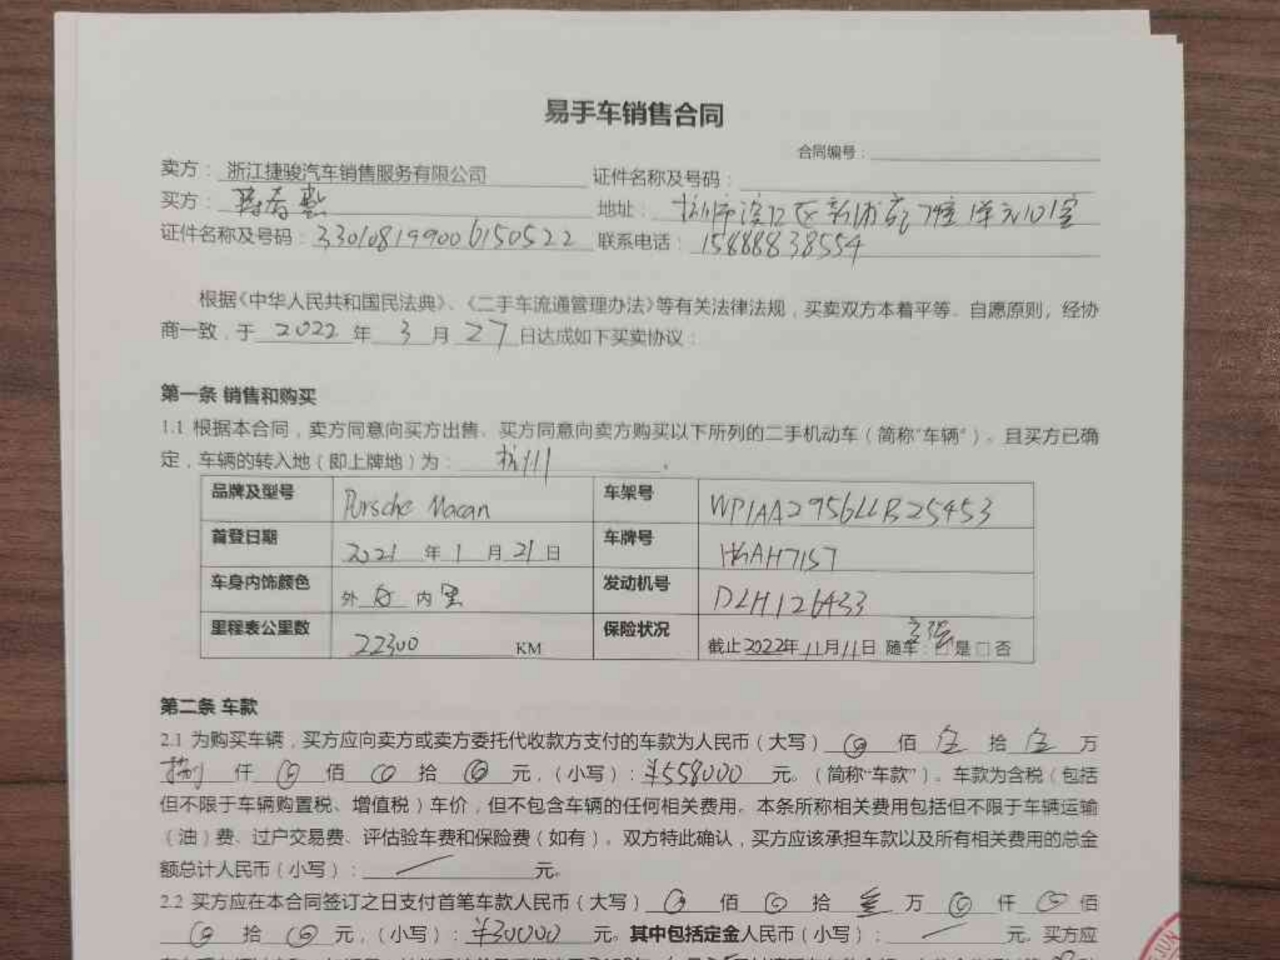 易手车销售合同
合同编号：
卖方：浙江捷骏汽车销售服务有限公司 证件名称及号码：
买方： 地址：杭州市滨江区 7幢1单元101室
证件名称及号码：330108199006150522 联系电话：15888838554
根据《中华人民共和国民法典》、《二手车流通管理办法》等有关法律法规，买卖双方本着平等、自愿原则，经协
商一致，于 2022 年 3 月 27 日达成如下买卖协议：
第一条 销售和购买
1.1 根据本合同，卖方同意向买方出售、买方同意向卖方购买以下所列的二手机动车（简称"车辆"）。且买方已确
定，车辆的转入地（即上牌地）为：杭州。
品牌及型号 Porsche Macan 车架号 WP1AA2956LLB25453
首登日期 2021 年 1 月 21 日 车牌号 浙AH7157
车身内饰颜色 外 白 内 黑 发动机号 DLH126433
里程表公里数 22300 KM 保险状况 截止 2022年 11月11日 随车：□是□否
第二条 车款
2.1 为购买车辆，买方应向卖方或卖方委托代收款方支付的车款为人民币（大写） 佰 伍 拾 伍 万
捌 仟 佰 拾 元，（小写）：¥558000 元。（简称"车款"）。车款为含税（包括
但不限于车辆购置税、增值税）车价，但不包含车辆的任何相关费用。本条所称相关费用包括但不限于车辆运输
（油）费、过户交易费、评估验车费和保险费（如有）。双方特此确认，买方应该承担车款以及所有相关费用的总金
额总计人民币（小写）： 元。
2.2 买方应在本合同签订之日支付首笔车款人民币（大写） 佰 拾 叁 万 仟 佰
拾 元，（小写）：¥30000 元。其中包括定金人民币（小写）： 元。买方应